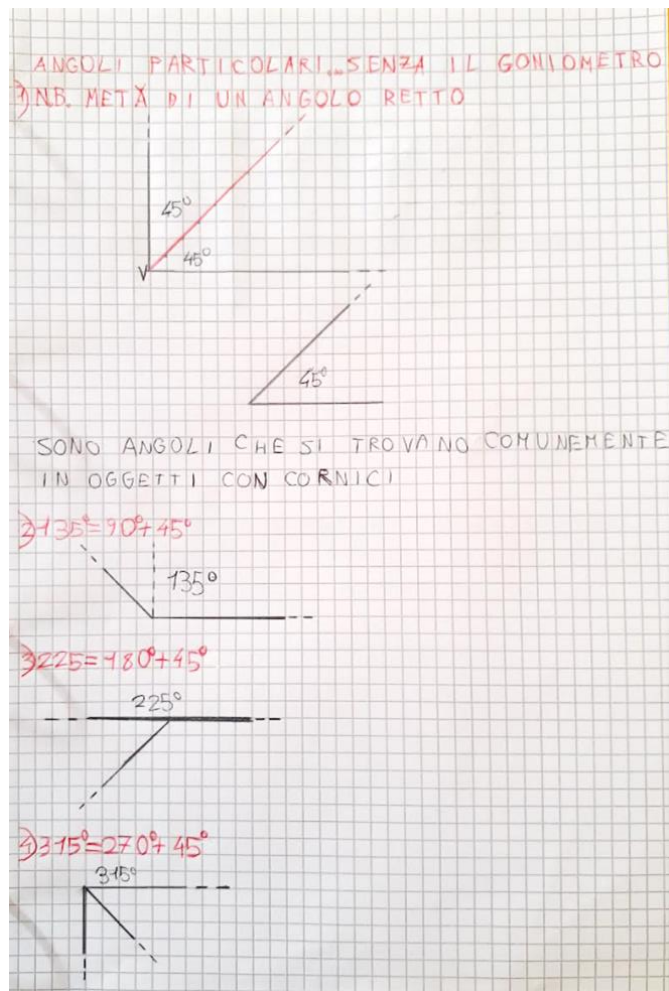 ANGOLI PARTICOLARI...SENZA IL GONIOMETRO
1) N.B. METÀ DI UN ANGOLO RETTO
45°
V 45°
45°
SONO ANGOLI CHE SI TROVANO COMUNEMENTE
IN OGGETTI CON CORNICI
2) 135°=90°+45°
135°
3) 225=180°+45°
225°
4) 315°=270°+45°
315°